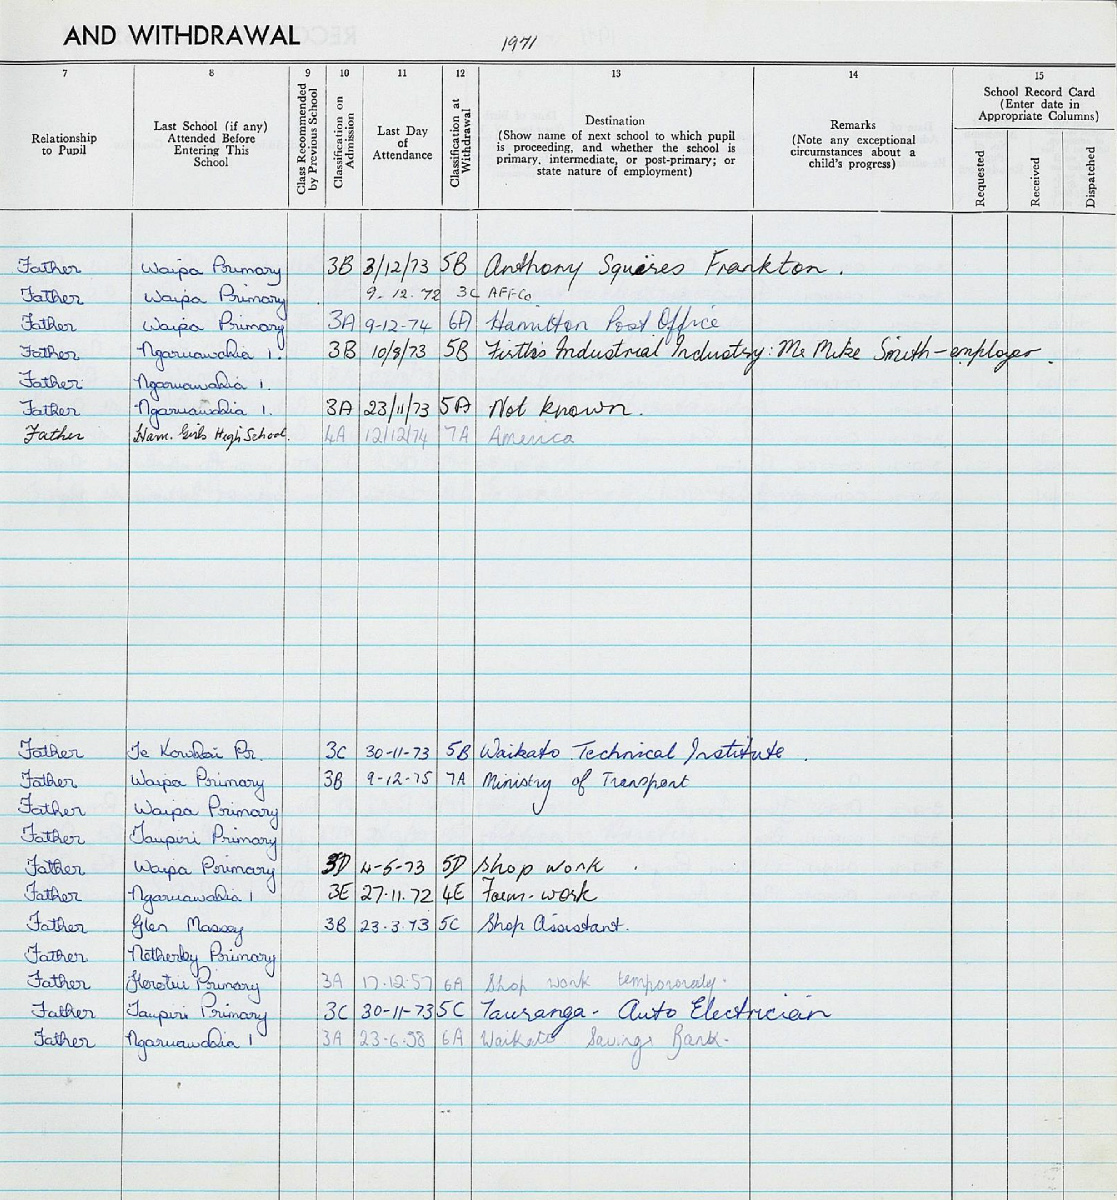 AND WITHDRAWAL
1971
7 8 9 10 11 12 13 14 15
Relationship to Pupil
Last School (if any) Attended Before Entering This School
Class Recommended by Previous School
Classification on Admission
Last Day of Attendance
Classification at Withdrawal
Destination (Show name of next school to which pupil is proceeding, and whether the school is primary, intermediate, or post-primary; or state nature of employment)
Remarks (Note any exceptional circumstances about a child's progress)
School Record Card (Enter date in Appropriate Columns)
Requested Received Dispatched
Father Waipa Primary 3B 3/12/73 5B Anthony Squires Frankton.
Father Waipa Primary 9-12.72 3C AFFCo
Father Waipa Primary 3A 9-12-74 6A Hamilton Post Office
Father Ngaruawahia 1. 3B 10/8/73 5B Firths Industrial Industry: Mr Mike Smith - employer.
Father Ngaruawahia 1.
Father Ngaruawahia 1. 3A 23/11/73 5A Not known.
Father Ham. Girls High School. 4A 12/12/74 7A America
Father Te Kowhai Pr. 3C 30-11-73 5B Waikato Technical Institute.
Father Waipa Primary 3B 9-12-75 7A Ministry of Transport
Father Waipa Primary
Father Taupiri Primary
Father Waipa Primary 3D 4-5-73 5D Shop work.
Father Ngaruawahia 1 3E 27.11.72 4E Farm-work
Father Glen Massey 3B 23.3.73 5C Shop Assistant.
Father Netherby Primary
Father Horotiu Primary 3A 17.12.57 6A Shop work temporarily.
Father Taupiri Primary 3C 30-11-73 5C Tauranga - Auto Electrician
Father Ngaruawahia 1 3A 23-6.58 6A Waikato Savings Bank.